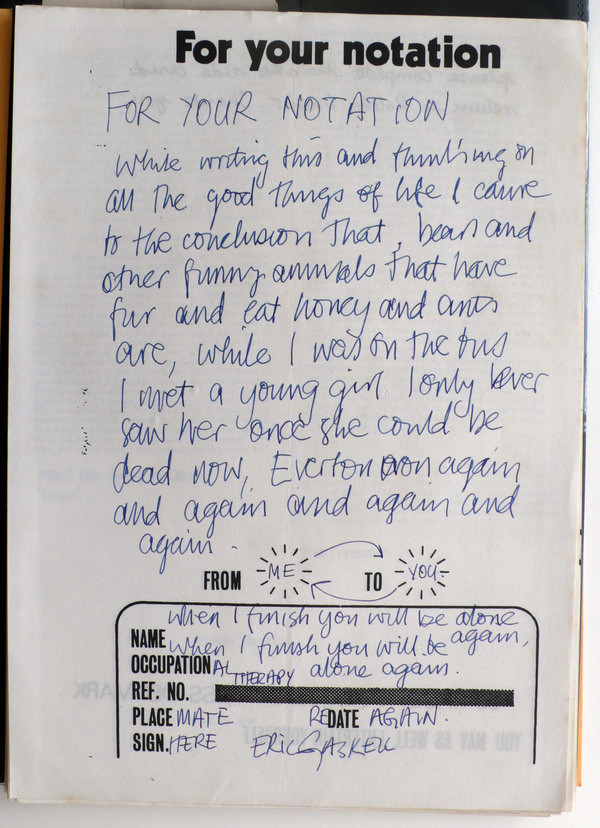 For your notation
FOR YOUR NOTATION
While writing this and thinking on
all the good things of life I came
to the conclusion that, bears and
other funny animals that have
fur and eat honey and ants
are, while I was on the bus
I met a young girl I only ever
saw her once she could be
dead now, Everton won again
and again and again and
again.
FROM ME TO YOU.
when I finish you will be alone again,
NAME when I finish you will be
OCCUPATIONAL THERAPY alone again.
REF. NO.
PLACE MATE REDATE AGAIN.
SIGN. HERE ERIC GASKELL